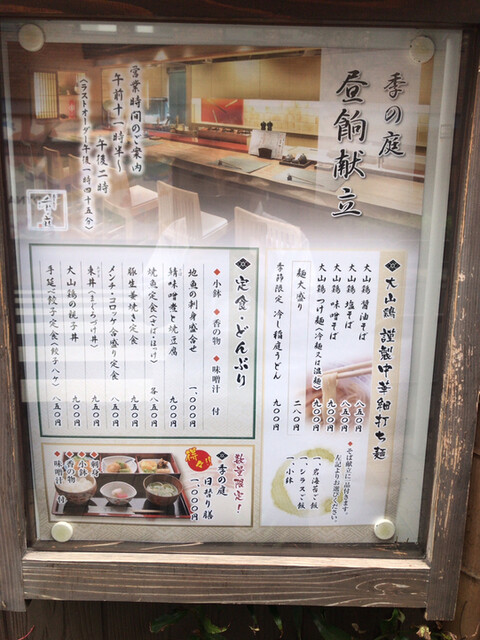 季の庭
昼餉献立
営業時間のご案内
午前十一時半〜
午後二時
(ラストオーダー午後一時四十五分)
季の庭
大山鶏 謹製中華細打ち麺
大山鶏 醤油そば 八五〇円
大山鶏 塩そば 八五〇円
大山鶏 味噌そば 九〇〇円
大山鶏 つけ麺(冷麺又は温麺) 九〇〇円
麺大盛り 二八〇円
季節限定 冷し稲庭うどん 九〇〇円
◆そば献立に一品付きます。
左記よりお選びください。
一、岩海苔ご飯
一、シラスご飯
一、小鉢
定食・どんぶり
◆小鉢 ◆香の物 ◆味噌汁 付
地魚の刺身盛合せ 一、〇〇〇円
鯖味噌煮と焼豆腐 九〇〇円
焼魚定食(さば・ほっけ) 各八五〇円
豚生姜焼き定食 九五〇円
メンチ・コロッケ合盛り定食 八五〇円
朱丼(まぐろづけ丼) 九五〇円
大山鶏の親子丼 九〇〇円
手延べ餃子定食(餃子八ケ) 八五〇円
数量限定!
得々!!
◆季の庭
日替り膳
一、〇〇〇円
◆刺身
◆小鉢
◆香の物
◆味噌汁 付